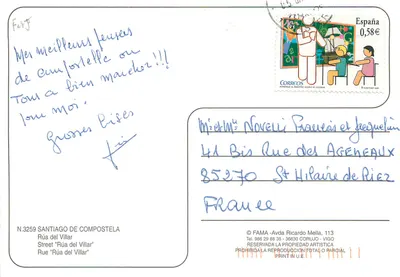 Mes meilleures pensées
de compostelle ou
Tous a bien marcher!!!
pour moi.
Grosses bises
España
0,58€
CORREOS
Mr et Me Novelli François et Jacqueline
41 Bis Rue des AGENEAUX
85270 St Hilaire de Riez
France
N.3259 SANTIAGO DE COMPOSTELA
Rúa del Villar
Street "Rúa del Villar"
Rue "Rúa del Villar"
© FAMA -Avda Ricardo Mella, 113
Tel. 986 29 86 35 - 36330 CORUJO - VIGO
RESERVADA LA PROPIEDAD ARTISTICA
PROHIBIDA LA REPRODUCCION TOTAL O PARCIAL
PRINT IN U.E.